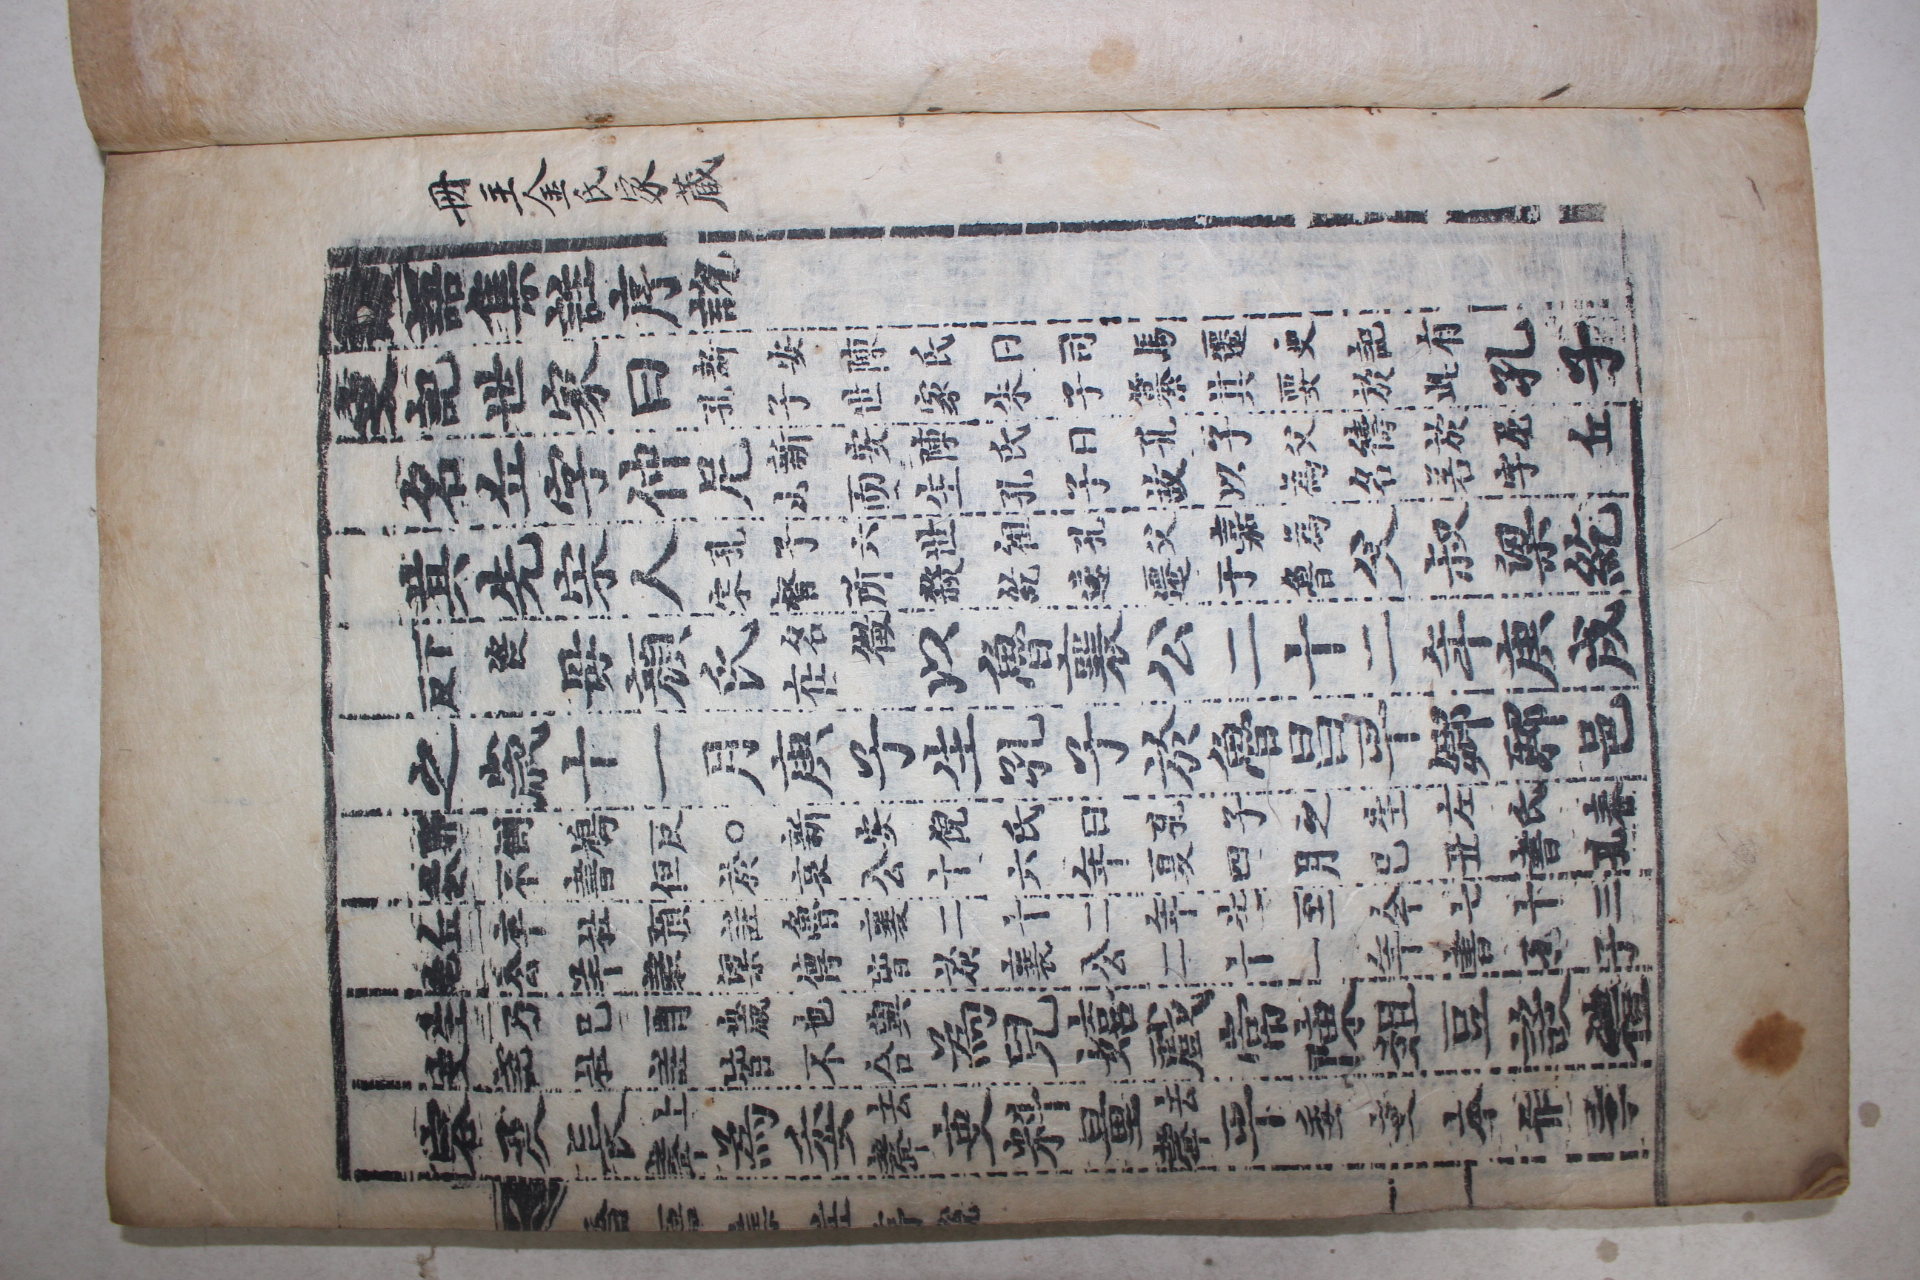 冊主金氏家藏
語集註序說
史記世家曰
新安陳氏曰司馬遷史記有
孔子世家朱子纂其要於此
孔子
名丘字仲尼
新安陳氏曰孔子父禱於尼丘
山而生孔子故以為名若字
其先宋人
孔子六世祖孔父嘉為
宋督所殺紇遂遷于魯
父叔梁紇
下
反
母顏氏
名徵
在
以魯襄公二十二年庚戌
之歲十一月庚子生孔子於魯昌平鄉鄹邑
側鳩反○新安倪氏曰孔子之生左氏春
不書但於哀公十六年夏四月己丑書孔
丘卒杜預註魯襄二十二年生至今七十三
公羊穀梁傳皆於襄公二十一年書孔子
生乃己酉歲也與
史記杜註皆不合
為兒嬉戲常陳俎豆設禮
容及長
上
聲
為委
去
聲
吏料量
去
聲
平
委吏本作季
語集註序說
一